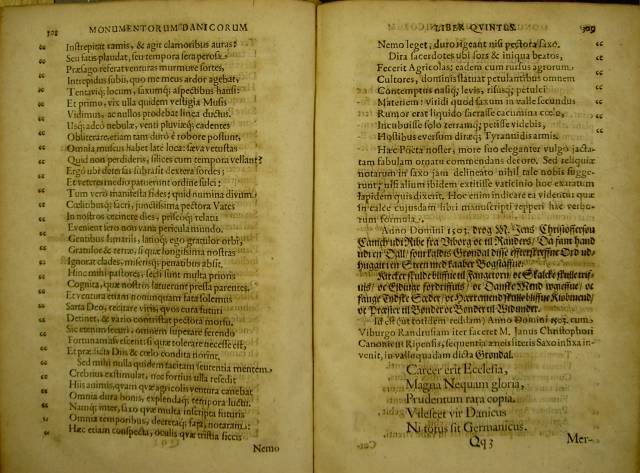 302 MONUMENTORUM DANICORUM
Instrepitat ramis, & agit clamoribus auras:
Seu fatis plaudat, seu tempora sera perosa.
Præsago referat venturæ murmure sortes,
Intrepidus subii, quo me meus ardor agebat,
Tentaviq; locum, saxumq; aspectibus hausi:
Et primo, vix ulla quidem vestigia Musis
Vidimus, ac nullos prodebat linea ductus.
Usq; adeò nebulæ, venti pluviæq; cadentes
Obliterare, etiam tam durò è robore possunt.
Omnia muscus habet late loca: sæva vetustas
Quid non perdideris, silices cum tempora vellant?
Ergò ubi detersas subrasit dextera sordes;
Et veteres medio patuerunt ordine sulci:
Tum vero manifesta fides; quid numina divum
Cœlitibusq; sacri, junctissima pectora Vates
In nostros cecinere dies, priscoq; relatu
Evenient sero non vana pericula mundo.
Gentibus Ismariis, latioq; ego gratulor orbi,
Gratulor & terræ, si quæ longissima nostras
Ignorat clades, miserisq; penatibus absit.
Hinc mihi pastores, secli sunt multa prioris
Cognita, quæ nostros latuerunt pressa parentes.
Et ventura etiam nonunquam fata solemus
Sarta Deo, recitare viris, quos cura futuri
Detinet, & vario contristat pectora motu,
Sic etenim securi, omnem superare ferendo
Fortunam as est: si quæ tolerare necesse est,
Et præ lictis Diis & cœlo condita norint,
Sed mihi nulla quidem facitam sententia mentem.
Crebius exstimulat, nec fortius ulla resedit
Hiis animis, quam quæ agricolis ventura canebat
Omnia dura bonis, explendaq; tempora luctu.
Namq; inter, saxo quæ multa inscripta futuris
Omnia temporibus, decretaq; fata, notaram:
Hæc etiam conspecta, oculis quæ tristia siccis
Nemo
LIBER QVINTUS. 309
Nemo leget, duro rigeant nisi pectora saxo.
Dira sacerdotes ubi sors & iniqua beatos,
Fecerit Agricolas; eadem cum rursus agrorum
Cultores, dominis statuat petulantibus omnem
Contemptus nasiq; levis, risusq; petulci
Materiem: viridi quod saxum in valle secundus
Rumor erat liquido sacrasse cacumina cœlo,
Incubuisse solo terramq; petisse videbis,
Hostibus eversum diræq; Tyrannidis armis.
Hæc Poeta noster, more suo eleganter vulgò jacta-
tam fabulam ornatu commendans decoro. Sed reliquiæ
notarum in saxo jam delineato nihil tale nobis sugge-
runt; nisi alium ibidem extitisse vaticinio hoc exaratum
lapidem quis dixerit. Hoc enim indicare videntur quæ
in calce cujusdam libri manuscripti repperi hæc verbo-
rum formula.
Anno Domini 1503. drog M. Jens Christoffersøn
Canich udi Ribe fra Viborg oc til Randers/ Da fant hand
udi en Dall/ som kaldes Grondal disse effterskreffne Ord ud-
huggit i en Steen med saadder Bogstaffue.
Kircker skulde bliffue til Fangetorn/ oc Skalcke skulle tri-
uffis/ oc Eiduge fordriffuis/ oc Danske Mend wgæffue/ oc
fange Tydste Sæder/ oc Hærremend skulle bliffue Kiøbmend/
oc Præster til Bønder oc Bønder til Vidunder.
Id est (ut totidem reddam) Anno Domini 1503. cum
Viburgo Randrusiam iter faceret M. Janus Christophori
Canonicus Ripensis, sequentia æneis literis Saxo infixa in-
venit, in valle quadam dicta Grondal.
Carcer erit Ecclesia,
Magna Nequam gloria,
Prudentum rara copia.
Vilescet vir Danicus
Ni totus sit Germanicus.
Qq3 Mer-